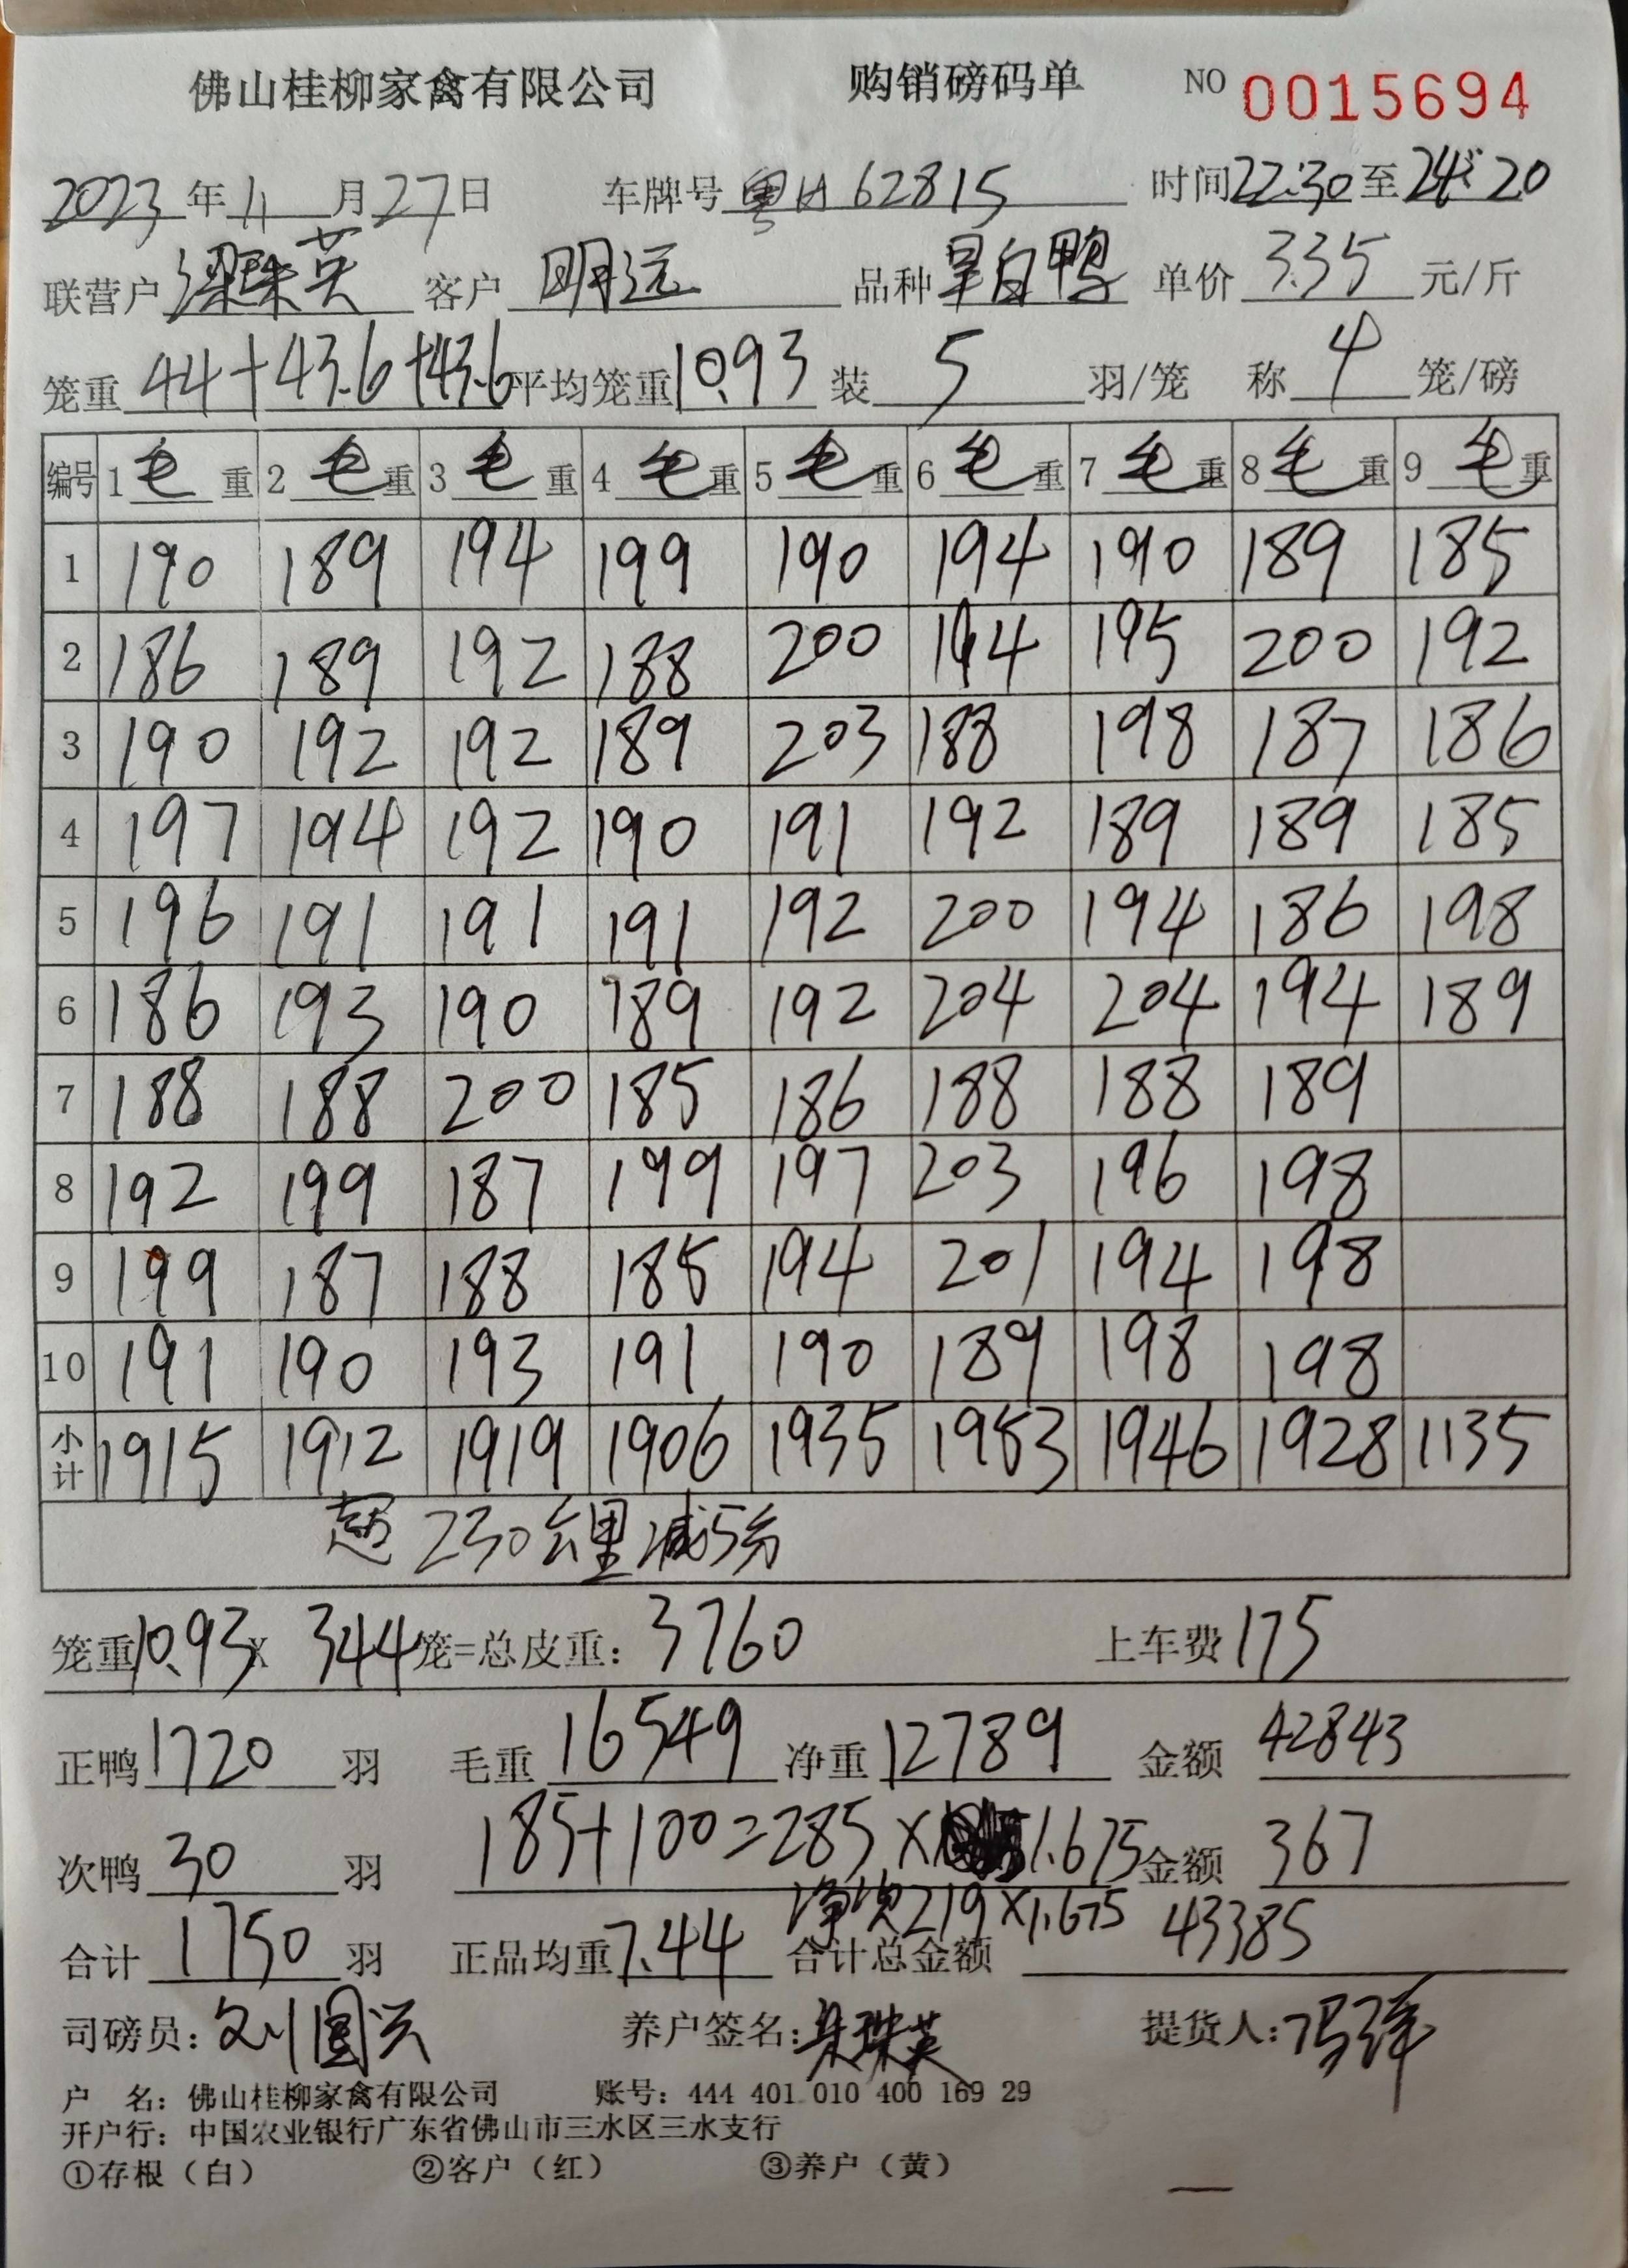 佛山桂柳家禽有限公司 购销磅码单 NO 0015694
2023年11月27日 车牌号 粤H62815 时间22:30至24:20
联营户 梁珠英 客户 明远 品种 旱白鸭 单价 3.35 元/斤
笼重 44+43.6+43.6 平均笼重 10.93 装 5 羽/笼 称 4 笼/磅
编号 1 毛 重 2 毛 重 3 毛 重 4 毛 重 5 毛 重 6 毛 重 7 毛 重 8 毛 重 9 毛 重
1 190 189 194 199 190 194 190 189 185
2 186 189 192 188 200 194 195 200 192
3 190 192 192 189 203 188 198 187 186
4 197 194 192 190 191 192 189 189 185
5 196 191 191 191 192 200 194 186 198
6 186 193 190 189 192 204 204 194 189
7 188 188 200 185 186 188 188 189
8 192 199 187 199 197 203 196 198
9 199 187 188 185 194 201 194 198
10 191 190 193 191 190 189 198 198
小计 1915 1912 1919 1906 1935 1953 1946 1928 1135
超230公里减5分
笼重10.93X 344笼=总皮重: 3760 上车费 175
正鸭 1720 羽 毛重 16549 净重 12789 金额 42843
次鸭 30 羽 185+100=285×1.675 金额 367
净次219×1.675
合计 1750 羽 正品均重 7.44 合计总金额 43385
司磅员: 刘国兴 养户签名: 朱珠英 提货人: 冯祥
户 名: 佛山桂柳家禽有限公司 账号: 444 401 010 400 169 29
开户行: 中国农业银行广东省佛山市三水区三水支行
①存根(白) ②客户(红) ③养户(黄)